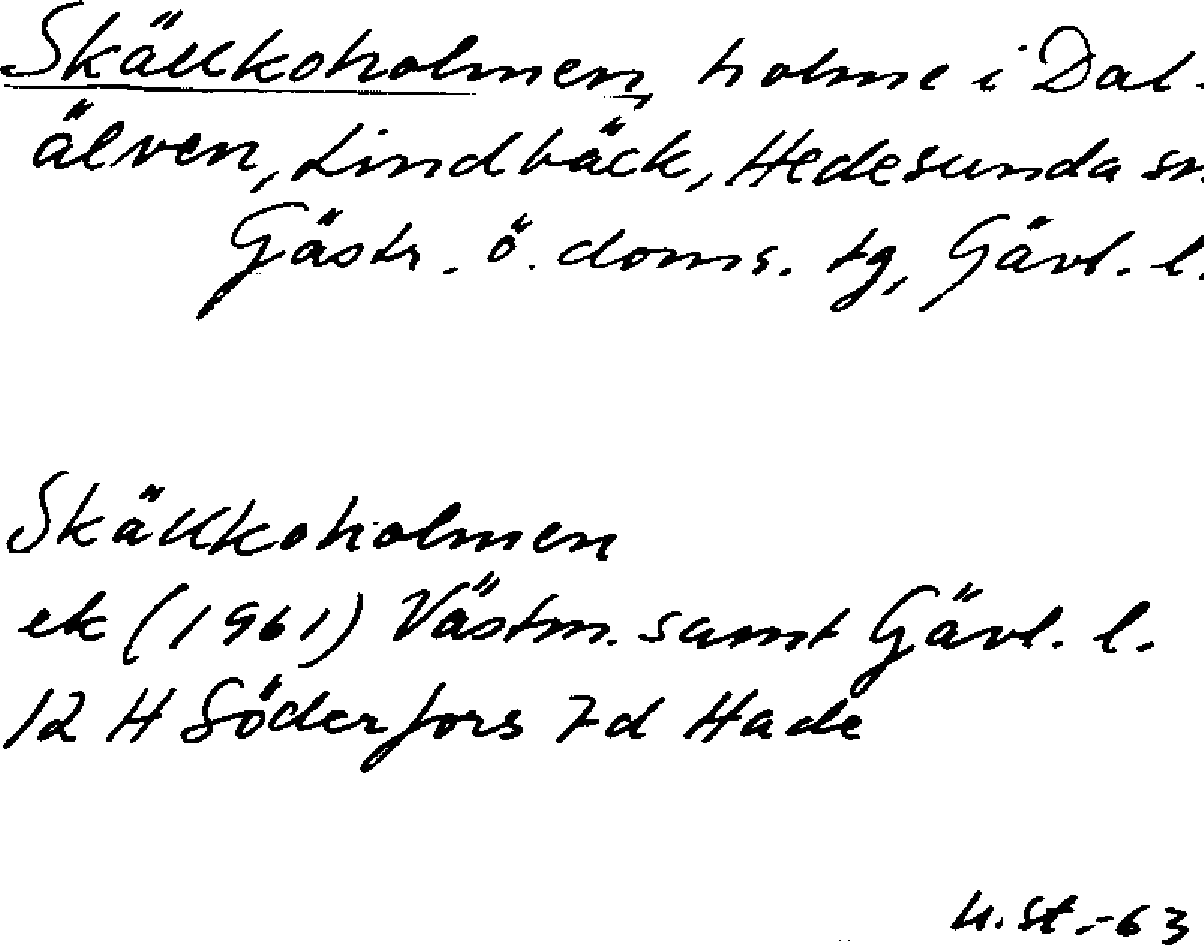 Skällkoholmen, holme i Dal-
älven, Lindbäck, Hedesunda sn
Gästr. ö. doms. tg, Gävl. l.
Skällkoholmen
ek (1961) Västm. samt Gävl. l.
12 H Söderfors 7d Hade
U.St.-63